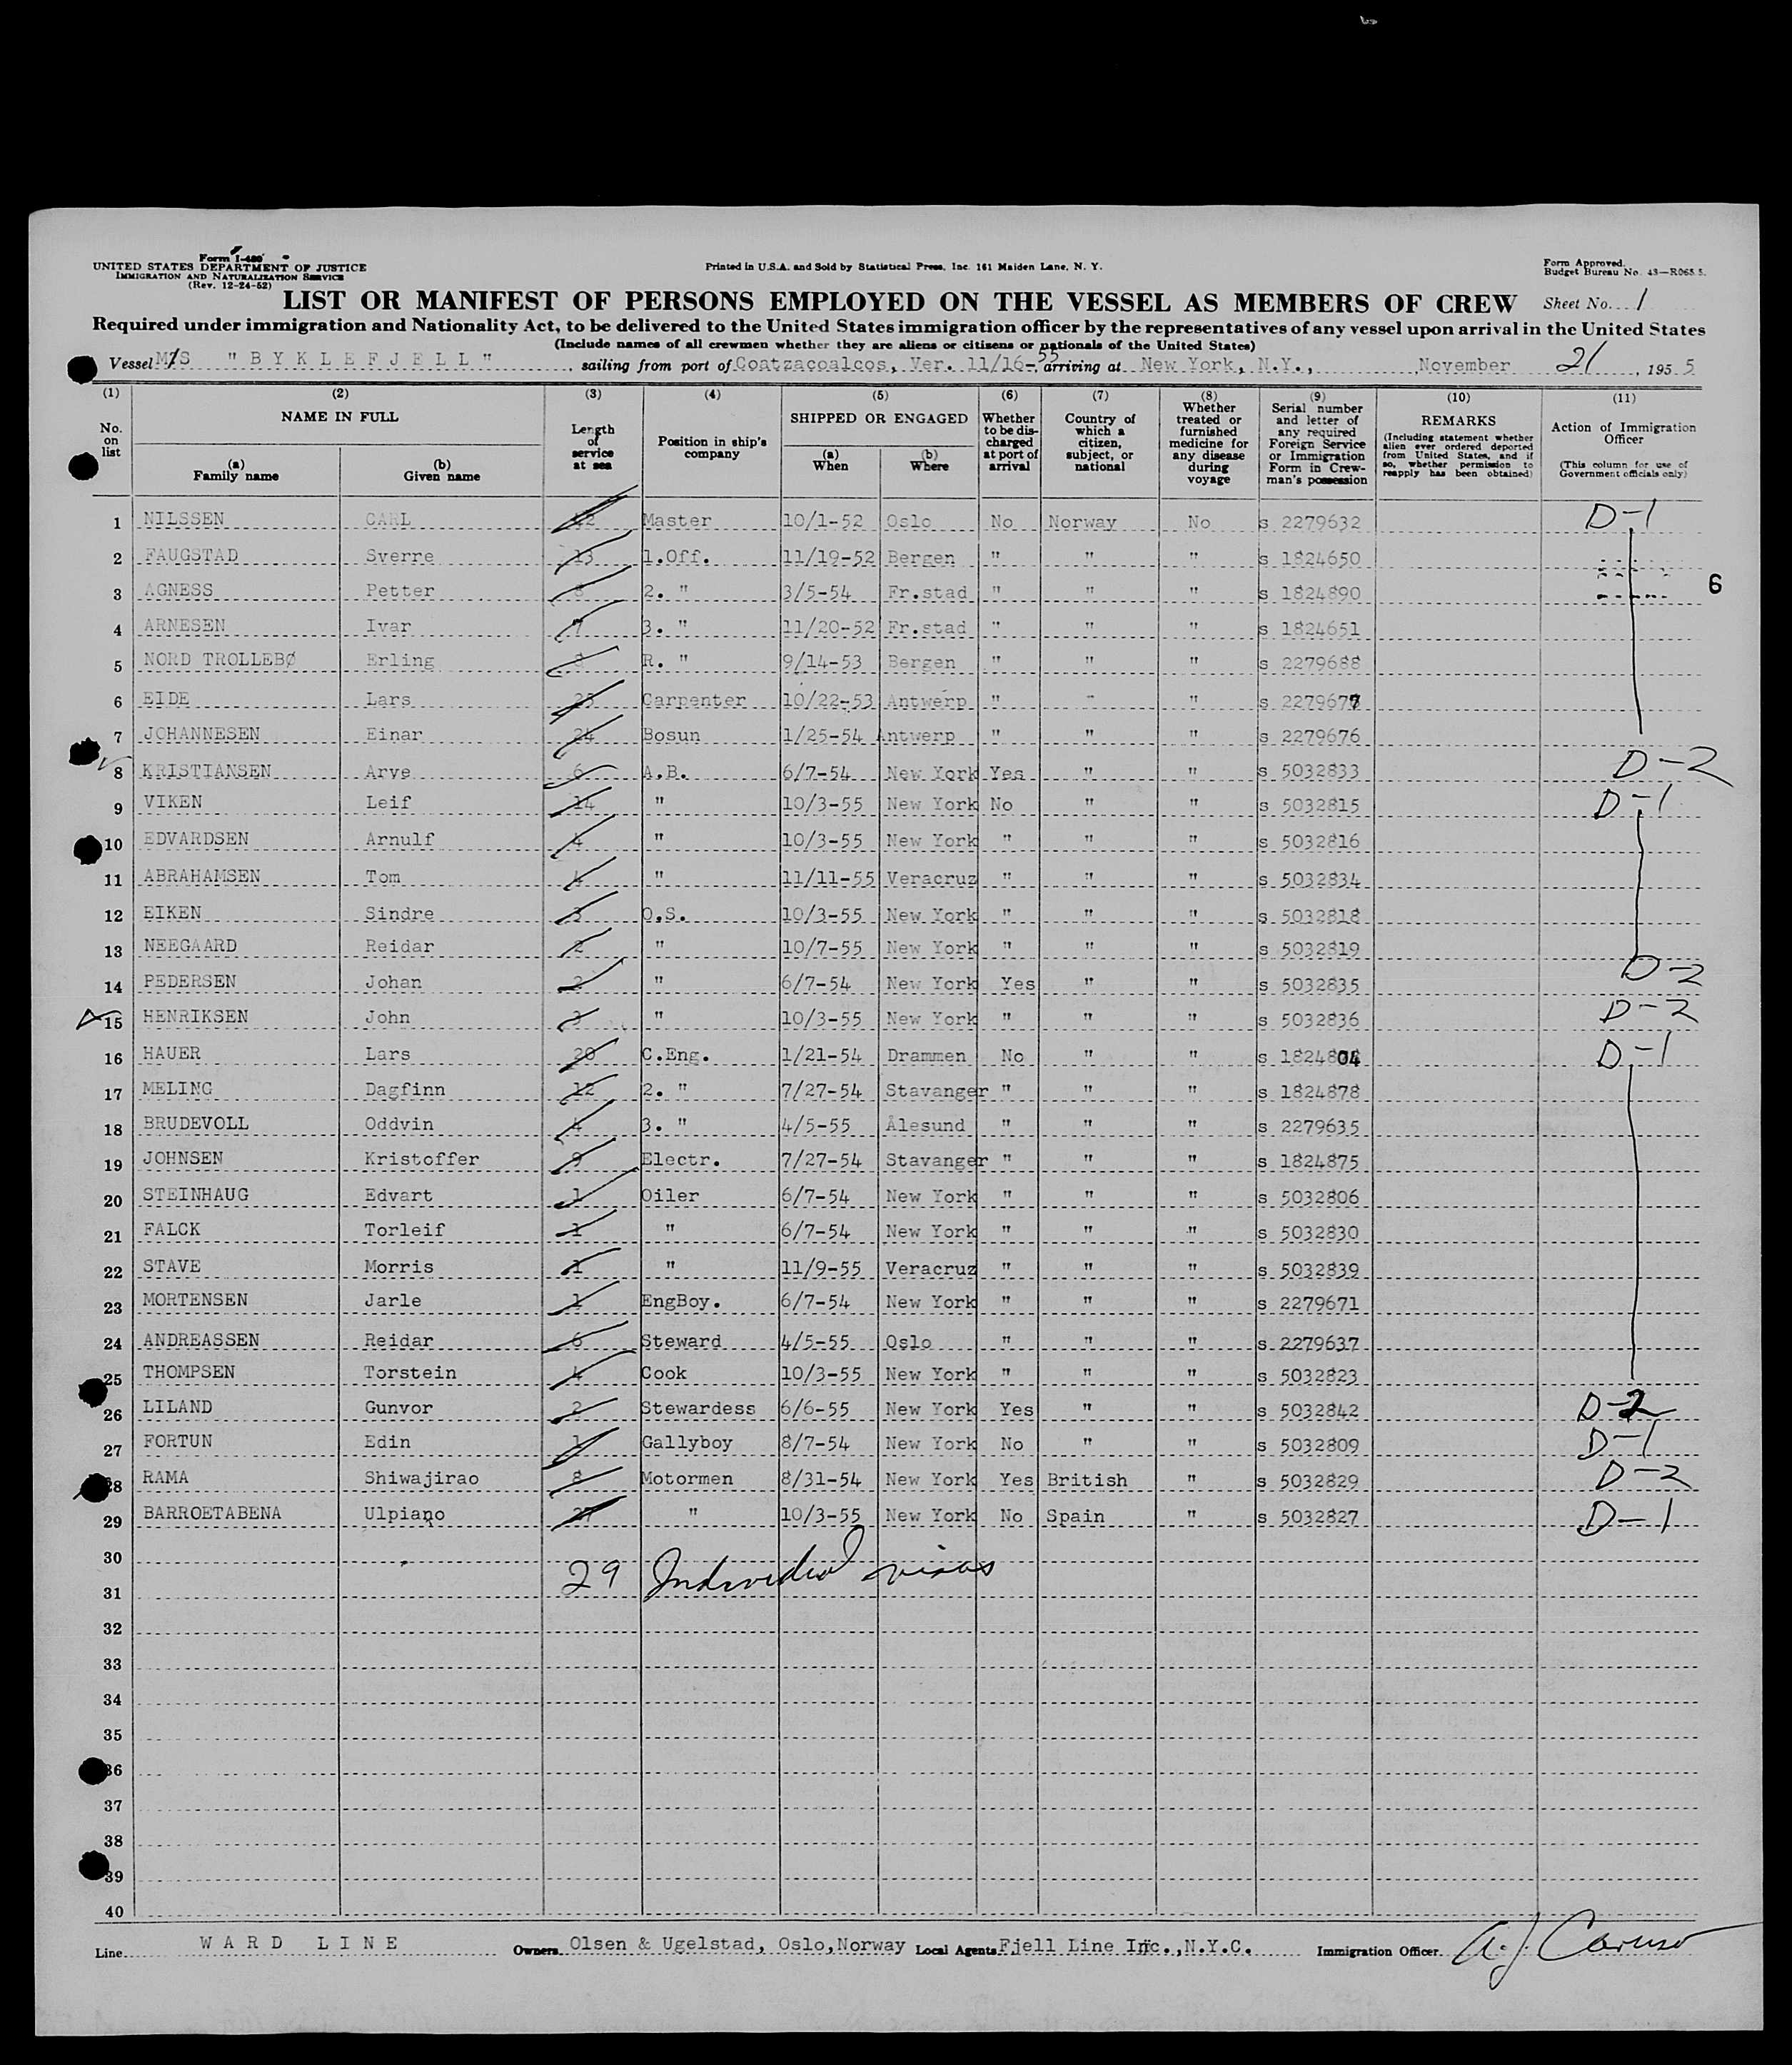 Form I-480
UNITED STATES DEPARTMENT OF JUSTICE
IMMIGRATION AND NATURALIZATION SERVICE
(Rev. 12-24-52)
Printed in U.S.A. and Sold by Statistical Press, Inc. 161 Maiden Lane, N. Y.
Form Approved.
Budget Bureau No. 43—R065.5.
LIST OR MANIFEST OF PERSONS EMPLOYED ON THE VESSEL AS MEMBERS OF CREW Sheet No. 1
Required under immigration and Nationality Act, to be delivered to the United States immigration officer by the representatives of any vessel upon arrival in the United States
(Include names of all crewmen whether they are aliens or citizens or nationals of the United States)
Vessel M/S "BYKLEFJELL", sailing from port of Coatzacoalcos, Ver. 11/16-55, arriving at New York, N.Y., November 21, 1955
(1) (2) (3) (4) (5) (6) (7) (8) (9) (10) (11)
No. on list
NAME IN FULL
(a) Family name
(b) Given name
Length of service at sea
Position in ship's company
SHIPPED OR ENGAGED
(a) When
(b) Where
Whether to be discharged at port of arrival
Country of which a citizen, subject, or national
Whether treated or furnished medicine for any disease during voyage
Serial number and letter of any required Foreign Service or Immigration Form in Crewman's possession
REMARKS
(Including statement whether alien ever ordered deported from United States, and if so, whether permission to reapply has been obtained)
Action of Immigration Officer
(This column for use of Government officials only)
1 NILSSEN CARL Master 10/1-52 Oslo No Norway No s 2279632 D-1
2 FAUGSTAD Sverre 13 1.Off. 11/19-52 Bergen " " " s 1824650
3 AGNESS Petter 8 2. " 3/5-54 Fr.stad " " " s 1824890 6
4 ARNESEN Ivar 7 3. " 11/20-52 Fr.stad " " " s 1824651
5 NORD TROLLEBØ Erling 8 R. " 9/14-53 Bergen " " " s 2279688
6 EIDE Lars Carpenter 10/22-53 Antwerp " " " s 2279677
7 JOHANNESEN Einar 24 Bosun 1/25-54 Antwerp " " " s 2279676
8 KRISTIANSEN Arve 6 A.B. 6/7-54 New York Yes " " s 5032833 D-2
9 VIKEN Leif 14 " 10/3-55 New York No " " s 5032815 D-1
10 EDVARDSEN Arnulf 4 " 10/3-55 New York " " " s 5032816
11 ABRAHAMSEN Tom 4 " 11/11-55 Veracruz " " " s 5032834
12 EIKEN Sindre 3 O.S. 10/3-55 New York " " " s 5032818
13 NEEGAARD Reidar 2 " 10/7-55 New York " " " s 5032819
14 PEDERSEN Johan 2 " 6/7-54 New York Yes " " s 5032835 D-2
15 HENRIKSEN John 3 " 10/3-55 New York " " " s 5032836 D-2
16 HAUER Lars 20 C.Eng. 1/21-54 Drammen No " " s 1824804 D-1
17 MELING Dagfinn 12 2. " 7/27-54 Stavanger " " " s 1824878
18 BRUDEVOLL Oddvin 4 3. " 4/5-55 Ålesund " " " s 2279635
19 JOHNSEN Kristoffer 9 Electr. 7/27-54 Stavanger " " " s 1824875
20 STEINHAUG Edvart 1 Oiler 6/7-54 New York " " " s 5032806
21 FALCK Torleif 1 " 6/7-54 New York " " " s 5032830
22 STAVE Morris 1 " 11/9-55 Veracruz " " " s 5032839
23 MORTENSEN Jarle 1 EngBoy. 6/7-54 New York " " " s 2279671
24 ANDREASSEN Reidar 6 Steward 4/5-55 Oslo " " " s 2279637
25 THOMPSEN Torstein 4 Cook 10/3-55 New York " " " s 5032823
26 LILAND Gunvor 2 Stewardess 6/6-55 New York Yes " " s 5032842 D-2
27 FORTUN Edin 1 Gallyboy 8/7-54 New York No " " s 5032809 D-1
28 RAMA Shiwajirao 8 Motormen 8/31-54 New York Yes British " s 5032829 D-2
29 BARROETABENA Ulpiano 27 " 10/3-55 New York No Spain " s 5032827 D-1
30
29 Individual visas
31
32
33
34
35
36
37
38
39
40
Line WARD LINE Owners Olsen & Ugelstad, Oslo,Norway Local Agents Fjell Line Inc.,N.Y.C. Immigration Officer A.J. Caruso